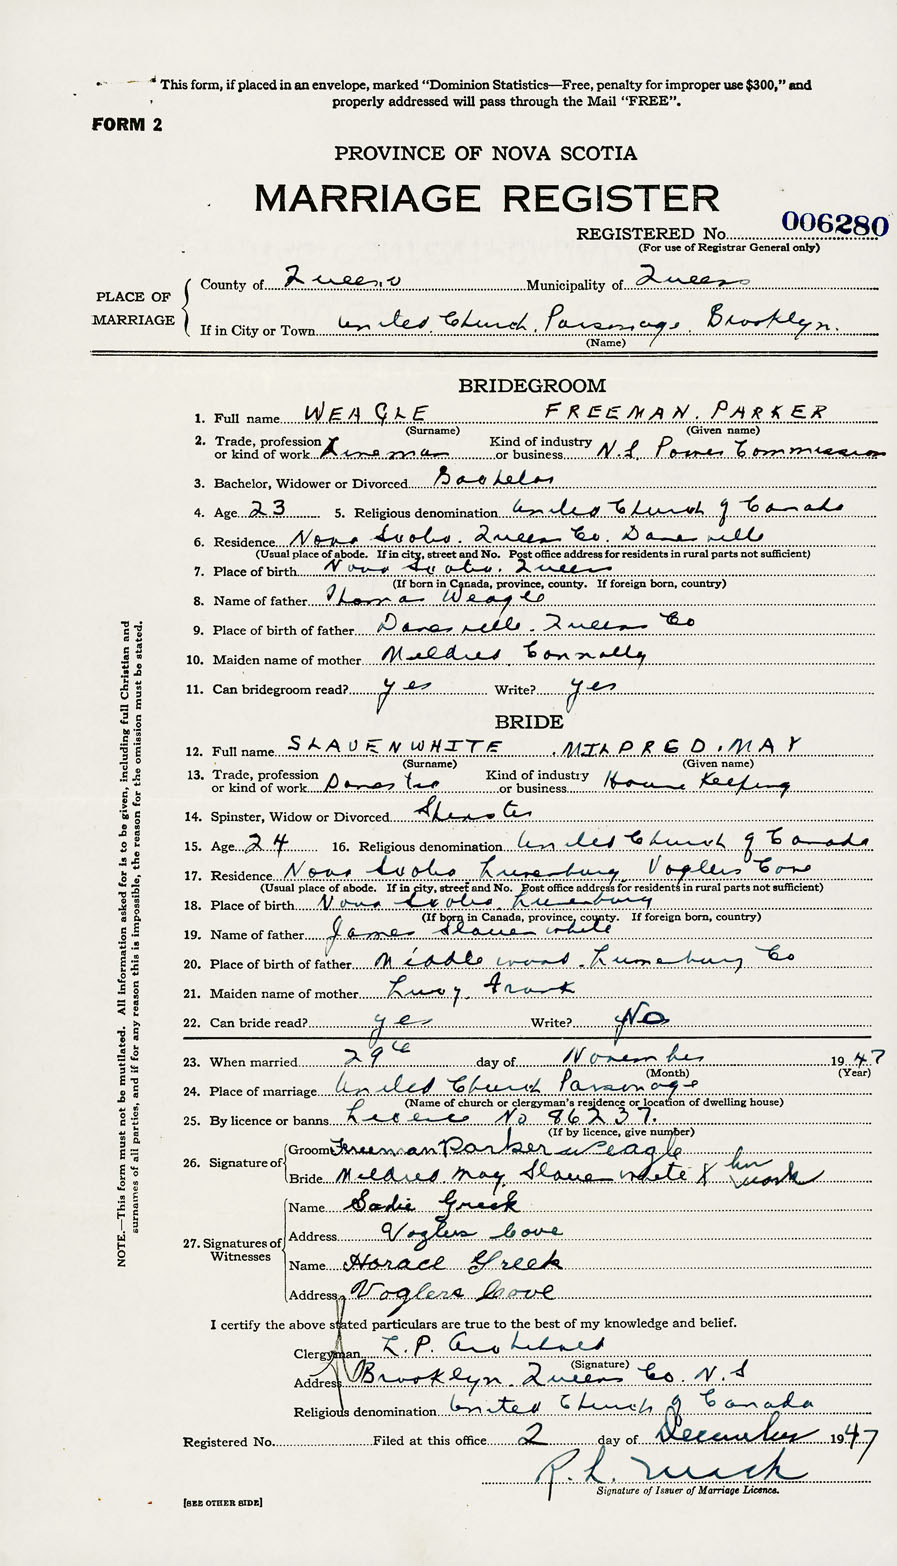 This form, if placed in an envelope, marked "Dominion Statistics—Free, penalty for improper use $300," and
properly addressed will pass through the Mail "FREE".
FORM 2
PROVINCE OF NOVA SCOTIA
MARRIAGE REGISTER
REGISTERED No. 006280
(For use of Registrar General only)
PLACE OF MARRIAGE
County of Queens Municipality of Queens
If in City or Town United Church Parsonage. Brooklyn.
(Name)
BRIDEGROOM
1. Full name WEAGLE FREEMAN. PARKER
(Surname) (Given name)
2. Trade, profession or kind of work Lineman Kind of industry or business N.S. Power Commission
3. Bachelor, Widower or Divorced Bachelor
4. Age 23 5. Religious denomination United Church of Canada
6. Residence Nova Scotia. Queens Co. Danesville
(Usual place of abode. If in city, street and No. Post office address for residents in rural parts not sufficient)
7. Place of birth Nova Scotia. Queens
(If born in Canada, province, county. If foreign born, country)
8. Name of father Thomas Weagle
9. Place of birth of father Danesville. Queens Co
10. Maiden name of mother Mildred Connolly
11. Can bridegroom read? yes Write? yes
BRIDE
12. Full name SLAUENWHITE MILDRED. MAY
(Surname) (Given name)
13. Trade, profession or kind of work Domestic Kind of industry or business House Keeping
14. Spinster, Widow or Divorced Spinster
15. Age 24 16. Religious denomination United Church of Canada
17. Residence Nova Scotia Lunenburg Voglers Cove
(Usual place of abode. If in city, street and No. Post office address for residents in rural parts not sufficient)
18. Place of birth Nova Scotia Lunenburg
(If born in Canada, province, county. If foreign born, country)
19. Name of father James Slauenwhite
20. Place of birth of father Middlewood. Lunenburg Co
21. Maiden name of mother Lucy.
22. Can bride read? yes Write? No
23. When married 29th day of November 1947
(Month) (Year)
24. Place of marriage United Church Parsonage
(Name of church or clergyman's residence or location of dwelling house)
25. By licence or banns Licence No 86237.
(If by licence, give number)
26. Signature of
Groom Freeman Parker Weagle
Bride Mildred. May Slauenwhite X her mark
27. Signatures of Witnesses
Name Sadie Greek
Address Voglers Cove
Name Horace Greek
Address Voglers Cove
I certify the above stated particulars are true to the best of my knowledge and belief.
Clergyman L. P. Archibald
(Signature)
Address Brooklyn. Queens Co. N.S
Religious denomination United Church of Canada
Registered No. Filed at this office 2 day of December 1947
R. L.
Signature of Issuer of Marriage Licence.
[SEE OTHER SIDE]
NOTE.—This form must not be mutilated. All information asked for is to be given, including full Christian and
surnames of all parties, and if for any reason this is impossible, the reason for the omission must be stated.